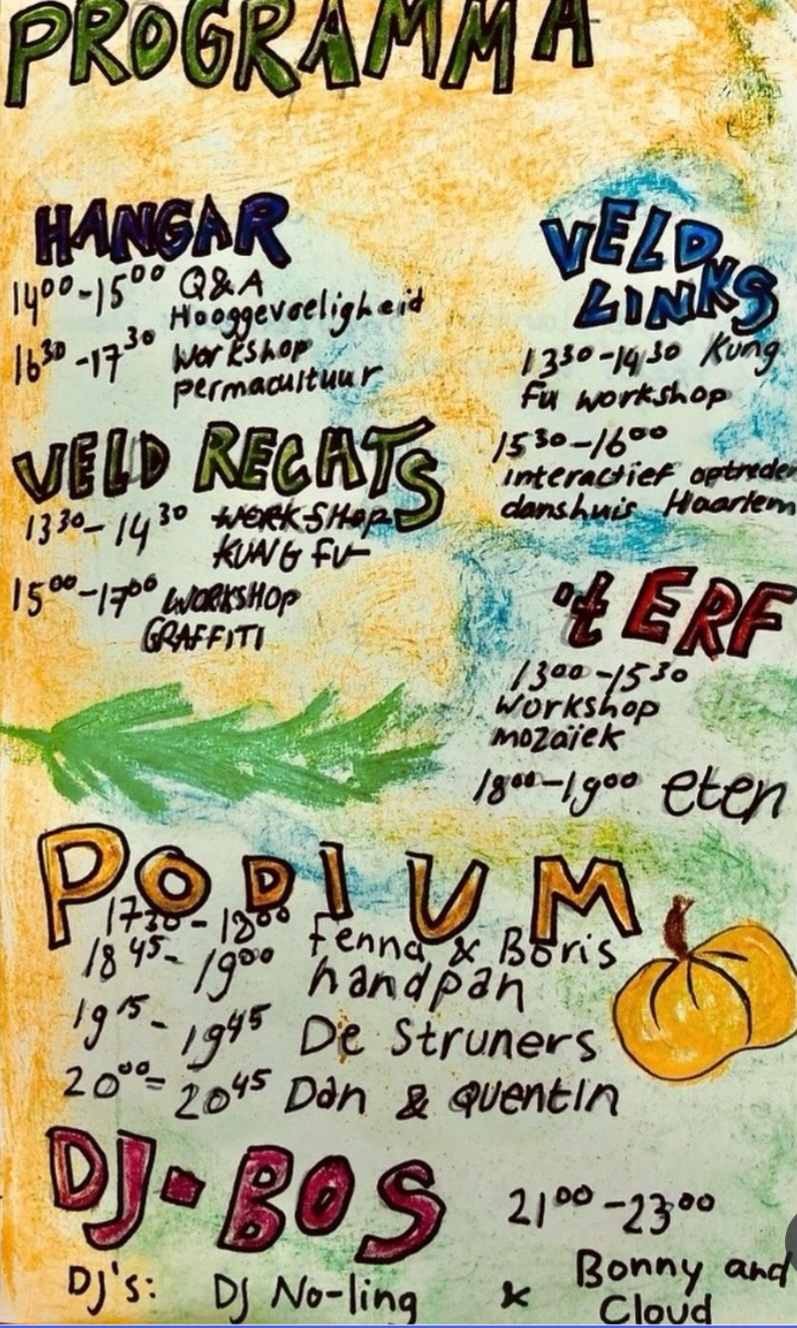 PROGRAMMA
HANGAR
14⁰⁰-15⁰⁰ Q&A
Hooggevoeligheid
16³⁰-17³⁰ Workshop
permacultuur
VELD RECHTS
13³⁰-14³⁰ WORKSHOP
KUNG FU
15⁰⁰-17⁰⁰ WORKSHOP
GRAFFITI
VELD
LINKS
13³⁰-14³⁰ Kung
Fu workshop
15³⁰-16⁰⁰
interactief optreden
danshuis Haarlem
't ERF
13⁰⁰-15³⁰
Workshop
mozaïek
18⁰⁰-19⁰⁰ eten
PODIUM
17³⁰-18⁰⁰ Fenna & Boris
18⁴⁵-19⁰⁰ handpan
19¹⁵-19⁴⁵ De Struners
20⁰⁰=20⁴⁵ Dan & QUENTIN
DJ-BOS
21⁰⁰-23⁰⁰
DJ's: DJ No-ling & Bonny and
Cloud